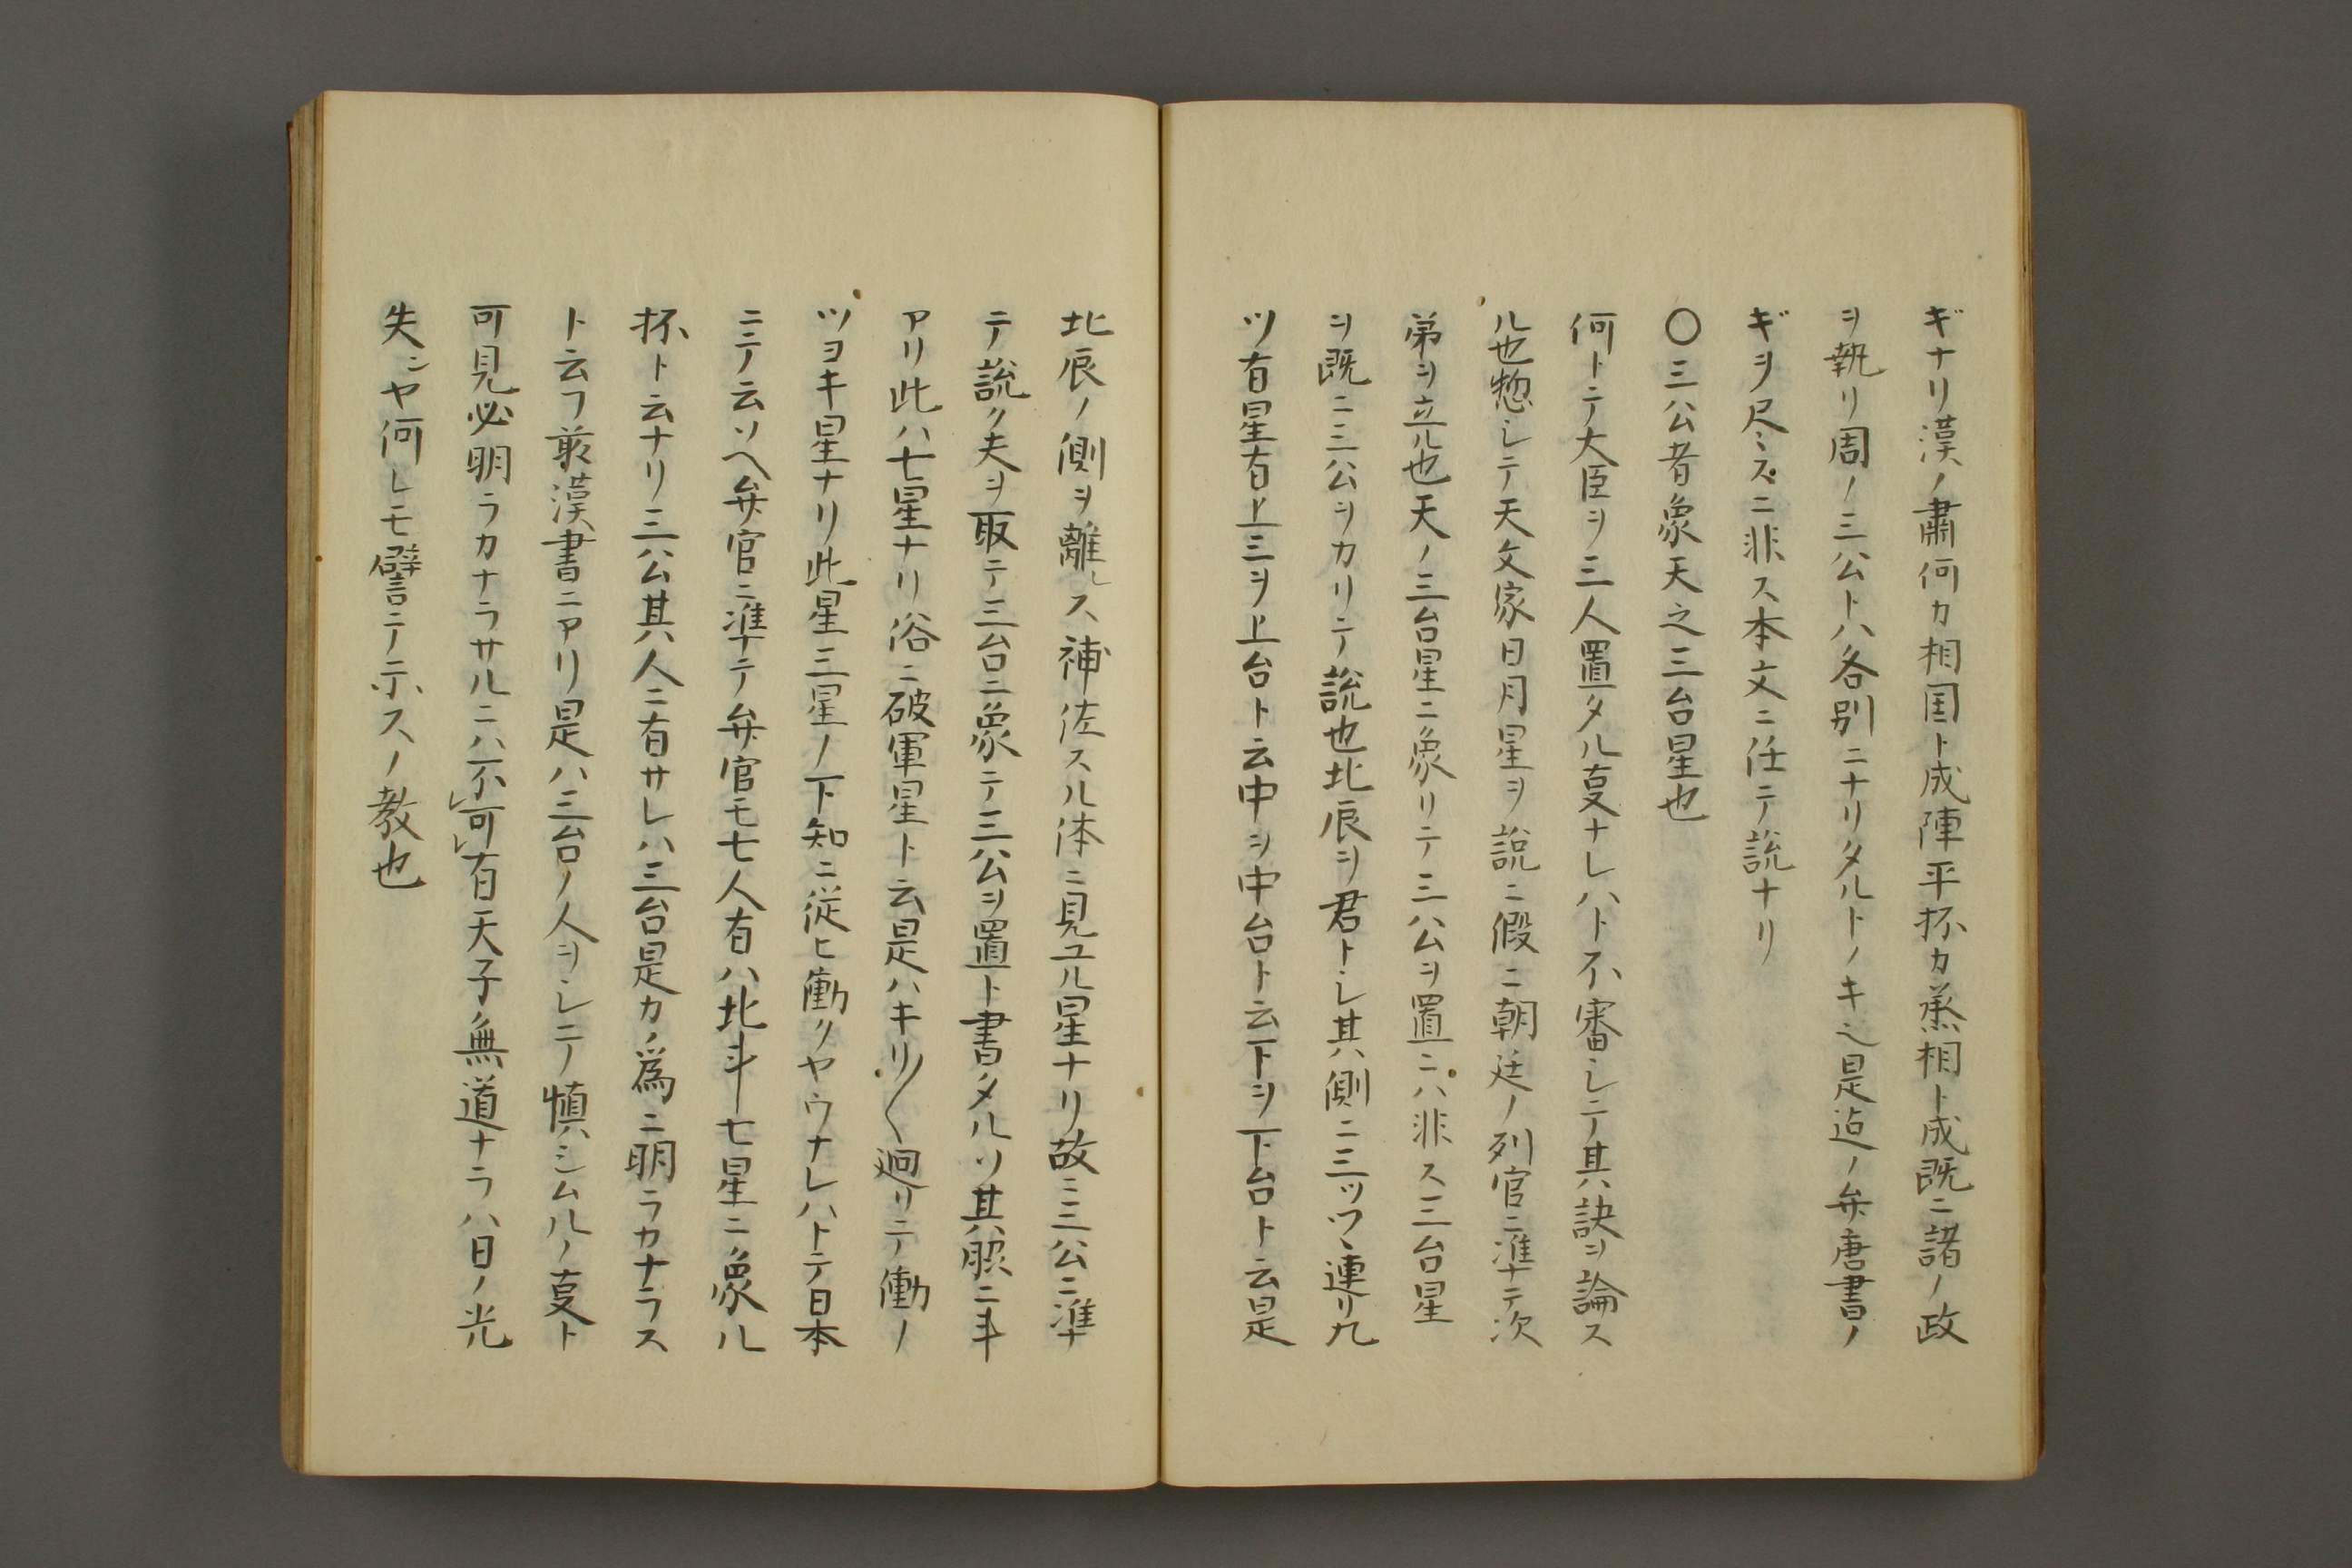 ギナリ漢ノ蕭何カ相国ト成陳平抔カ丞相ト成既ニ諸ノ政
ヲ執リ周ノ三公トハ各別ニナリタルトノキ之是迠ノ弁唐書ノ
ギヲ尽ミズニ非ス本文ニ任テ説ナリ
〇三公者象天之三台星也
何トニテ大臣ヲ三人置タル㕝ナレハト不審シニテ其訣ヲ論ス
ル也惣シテ天文家日月星ヲ説ニ假ニ朝廷ノ列官ニ準テ次
第ヲ立ル也天ノ三台星ニ象リテ三公ヲ置ニハ非ス三台星
ヲ既ニ三公ヲカリニテ説也北辰ヲ君トシ其側ニ三ツヅヽ連リ九
ツ有星有上三ヲ上台ト云中ヲ中台ト云下ヲ下台ト云是
北辰ノ側ヲ離レス補佐スル体ニ見ユル星ナリ故ニ三公ニ準
テ説ク夫ヲ取テ三台ニ象テ三公ヲ置ト書タルソ其服ニ斗
アリ此ハ七星ナリ俗ニ破軍星ト云是ハキリ〳〵廻リニテ働ノ
ツヨキ星ナリ此星三星ノ下知ニ従ヒ働クヤウナレハトテ日本
ニニテ云ソヘ弁官ニ準テ弁官モ七人有ハ北斗七星ニ象ル
抔ト云ナリ三公其人ニ有サレハ三台是カ為ニ明ラカナラス
ト云フ前漢書ニアリ是ハ三台ノ人ヲシニテ慎シムルノ㕝ト
可見必明ラカナラサルニハ不可有天子無道ナラハ日ノ光
失ンヤ何レモ譬ニテ示スノ教也